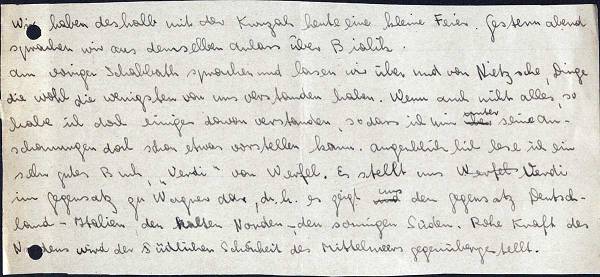 Wir haben deshalb mit der Kwuzah heute eine kleine Feier. Gestern abend
sprachen wir aus demselben Anlass über Bialik.
Am vorigen Schabbath sprachen und lasen wir über und von Nietzsche, Dinge
die wohl die wenigsten von uns verstanden haben. Wenn auch nicht alles, so
habe ich doch einiges davon verstanden, sodass ich mir unter seine An-
schauungen doch schon etwas vorstellen kann. Augenblicklich lese ich ein
sehr gutes Buch, "Verdi" von Werfel. Es stellt uns Werfel Verdi
im Gegensatz zu Wagner dar, d.h. es zeigt uns den Gegensatz Deutsch-
land - Italien den kalten Norden - den sonnigen Süden. Rohe Kraft des
Nordens wird der südlichen Schönheit des Mittelmeers gegenübergestellt.